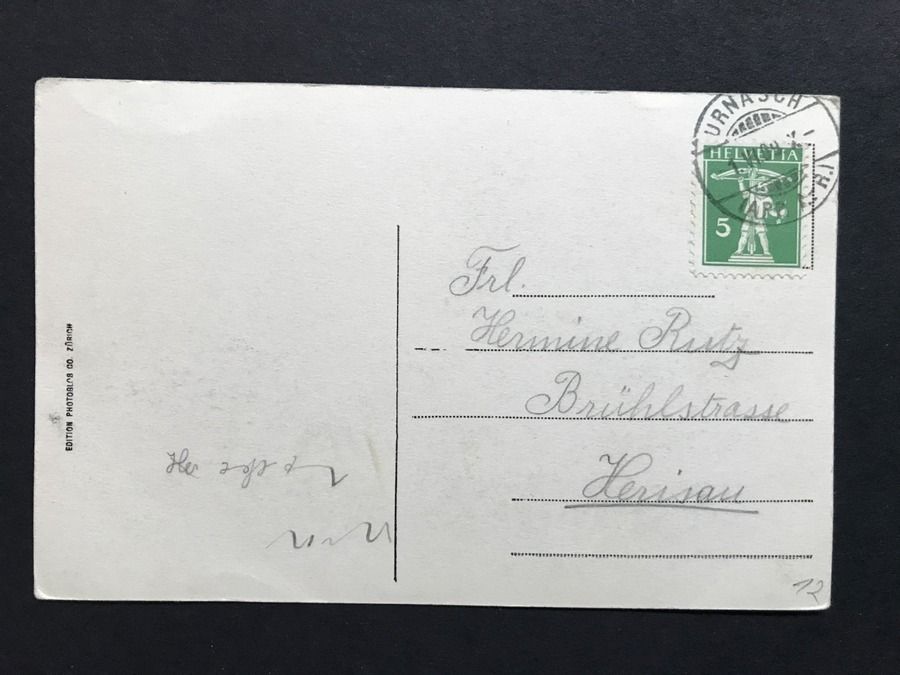 URNÄSCH
HELVETIA
5
Frl.
Hermine Rutz
Brühlstrasse
Herisau
EDITION PHOTOGLOB CO. ZÜRICH
12